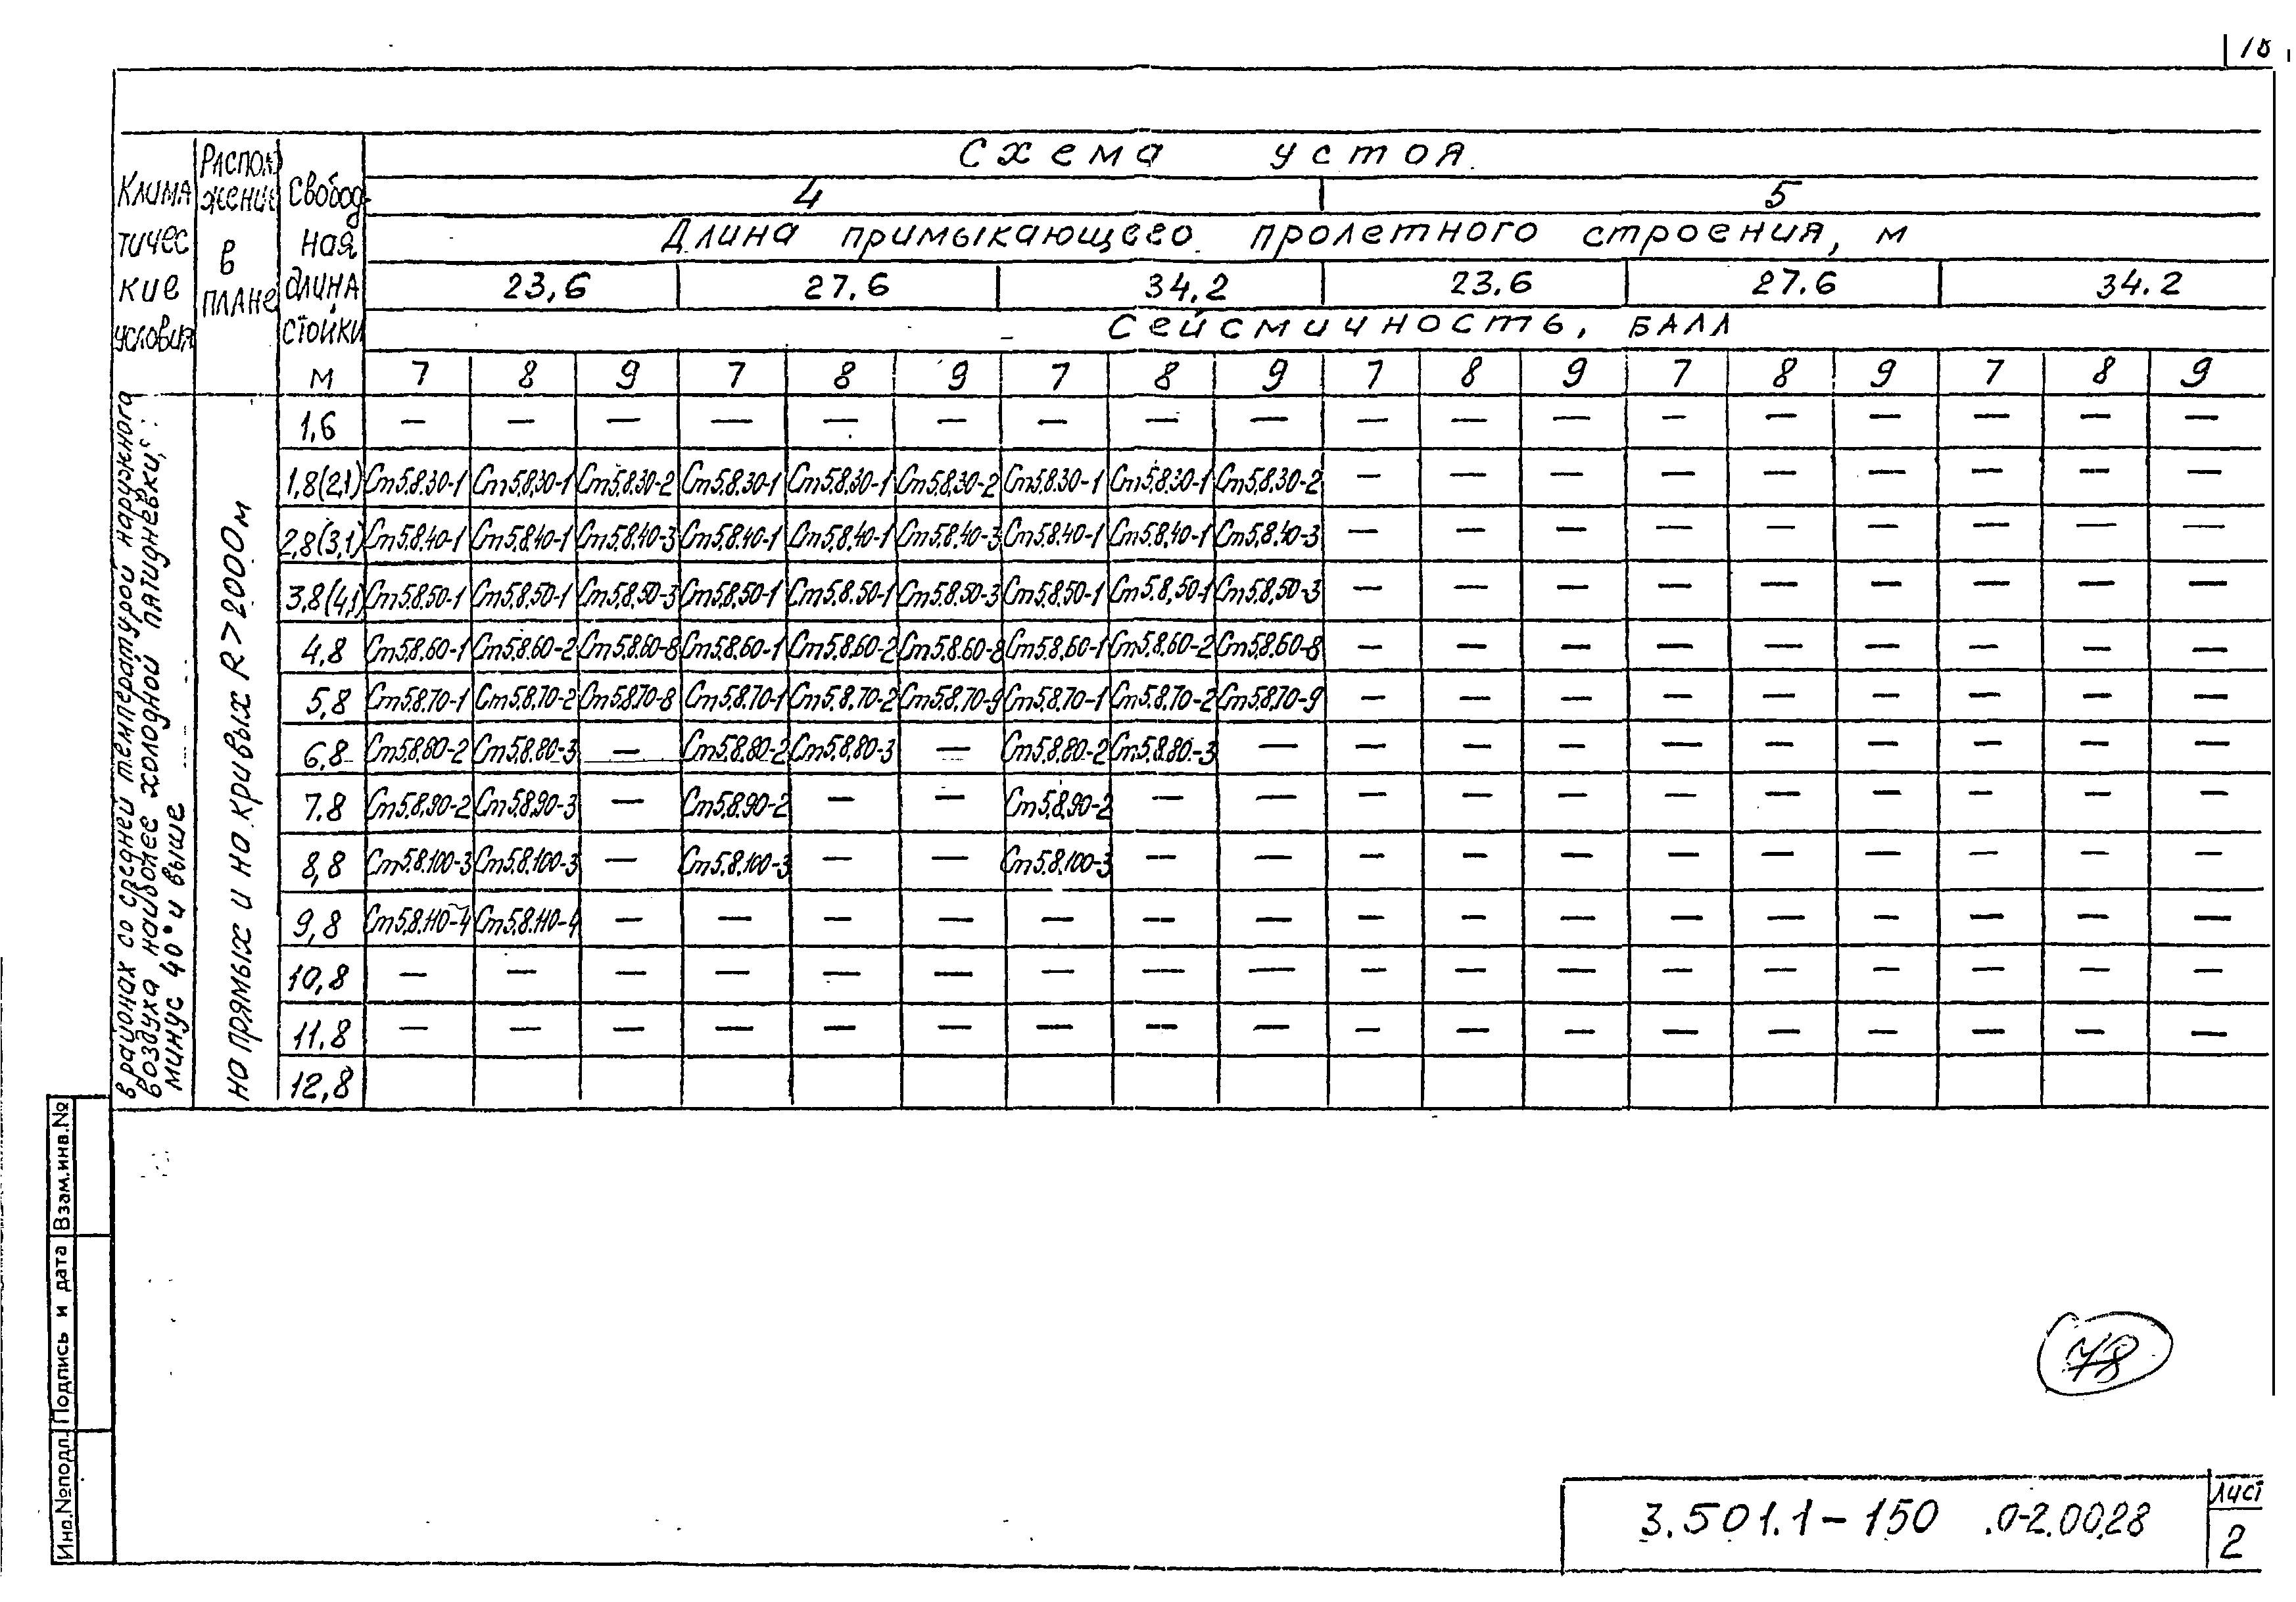 Схема устоя
Климатические условия
Расположение в плане
Свободная длина стойки м
4 5
Длина примыкающего пролетного строения, м
23,6 27.6 34.2 23.6 27.6 34.2
Сейсмичность, балл
7 8 9 7 8 9 7 8 9 7 8 9 7 8 9 7 8 9
в районах со средней температурой наружного
воздуха наиболее холодной пятидневки,
минус 40° и выше
на прямых и на кривых R>2000м
1,6 — — — — — — — — — — — — — — — — — —
1,8(2,1) Ст5.8.30-1 Ст5.8.30-1 Ст5.8.30-2 Ст5.8.30-1 Ст5.8.30-1 Ст5.8.30-2 Ст5.8.30-1 Ст5.8.30-1 Ст5.8.30-2 — — — — — — — — —
2,8(3,1) Ст5.8.40-1 Ст5.8.40-1 Ст5.8.40-3 Ст5.8.40-1 Ст5.8.40-1 Ст5.8.40-3 Ст5.8.40-1 Ст5.8.40-1 Ст5.8.40-3 — — — — — — — — —
3,8(4,1) Ст5.8.50-1 Ст5.8.50-1 Ст5.8.50-3 Ст5.8.50-1 Ст5.8.50-1 Ст5.8.50-3 Ст5.8.50-1 Ст5.8.50-1 Ст5.8.50-3 — — — — — — — — —
4,8 Ст5.8.60-1 Ст5.8.60-2 Ст5.8.60-8 Ст5.8.60-1 Ст5.8.60-2 Ст5.8.60-8 Ст5.8.60-1 Ст5.8.60-2 Ст5.8.60-8 — — — — — — — — —
5,8 Ст5.8.70-1 Ст5.8.70-2 Ст5.8.70-8 Ст5.8.70-1 Ст5.8.70-2 Ст5.8.70-9 Ст5.8.70-1 Ст5.8.70-2 Ст5.8.70-9 — — — — — — — — —
6,8 Ст5.8.80-2 Ст5.8.80-3 — Ст5.8.80-2 Ст5.8.80-3 — Ст5.8.80-2 Ст5.8.80-3 — — — — — — — — — —
7.8 Ст5.8.90-2 Ст5.8.90-3 — Ст5.8.90-2 — — Ст5.8.90-2 — — — — — — — — — — —
8,8 Ст5.8.100-3 Ст5.8.100-3 — Ст5.8.100-3 — — Ст5.8.100-3 — — — — — — — — — — —
9,8 Ст5.8.110-4 Ст5.8.110-4 — — — — — — — — — — — — — — — —
10,8 — — — — — — — — — — — — — — — — — —
11.8 — — — — — — — — — — — — — — — — — —
12,8
Взам.инв.№
Подпись и дата
Инв.№подл.
78
3.501.1-150 .0-2.0028
Лист
2